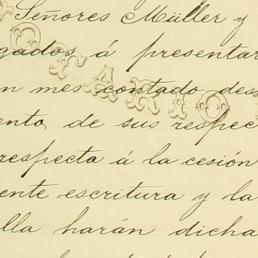 Señores Müller y
gados á presentar
n mes contado des
ento de sus respec
respecta á la cesión
ente escritura y la
lla harán dicha